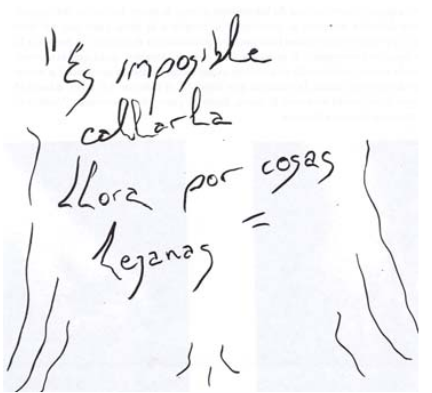 "Es imposible
callarla
LLora por cosas
Lejanas =